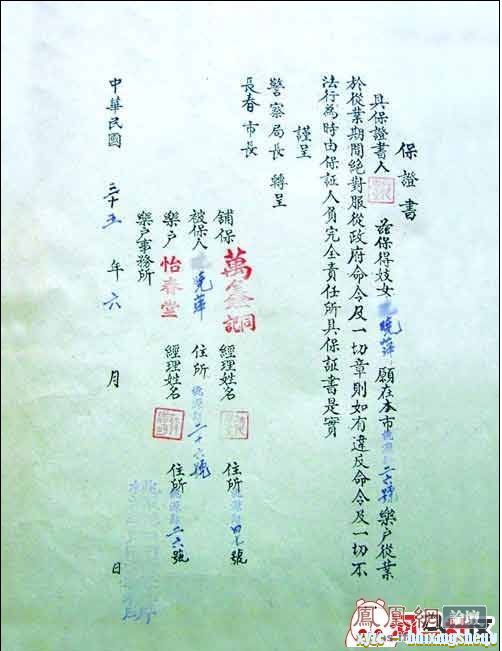 保證書
具保證書人 茲保得妓女 曉萍 願在本市桃源路二六號樂户從業
於從業期間絕對服從政府命令及一切章則如有違反命令及一切不
法行為時由保証人負完全責任所具保証書是實
謹呈
警察局長 轉呈
長春市長
舖保 萬鑫 記 經理姓名 住所桃源路四七號
被保人 曉萍 住所桃源路二十六號
樂户 怡春堂 經理姓名 住所桃源路二六號
樂户事務所
中華民國 三十五 年 六 月 日
鳳凰網 論壇